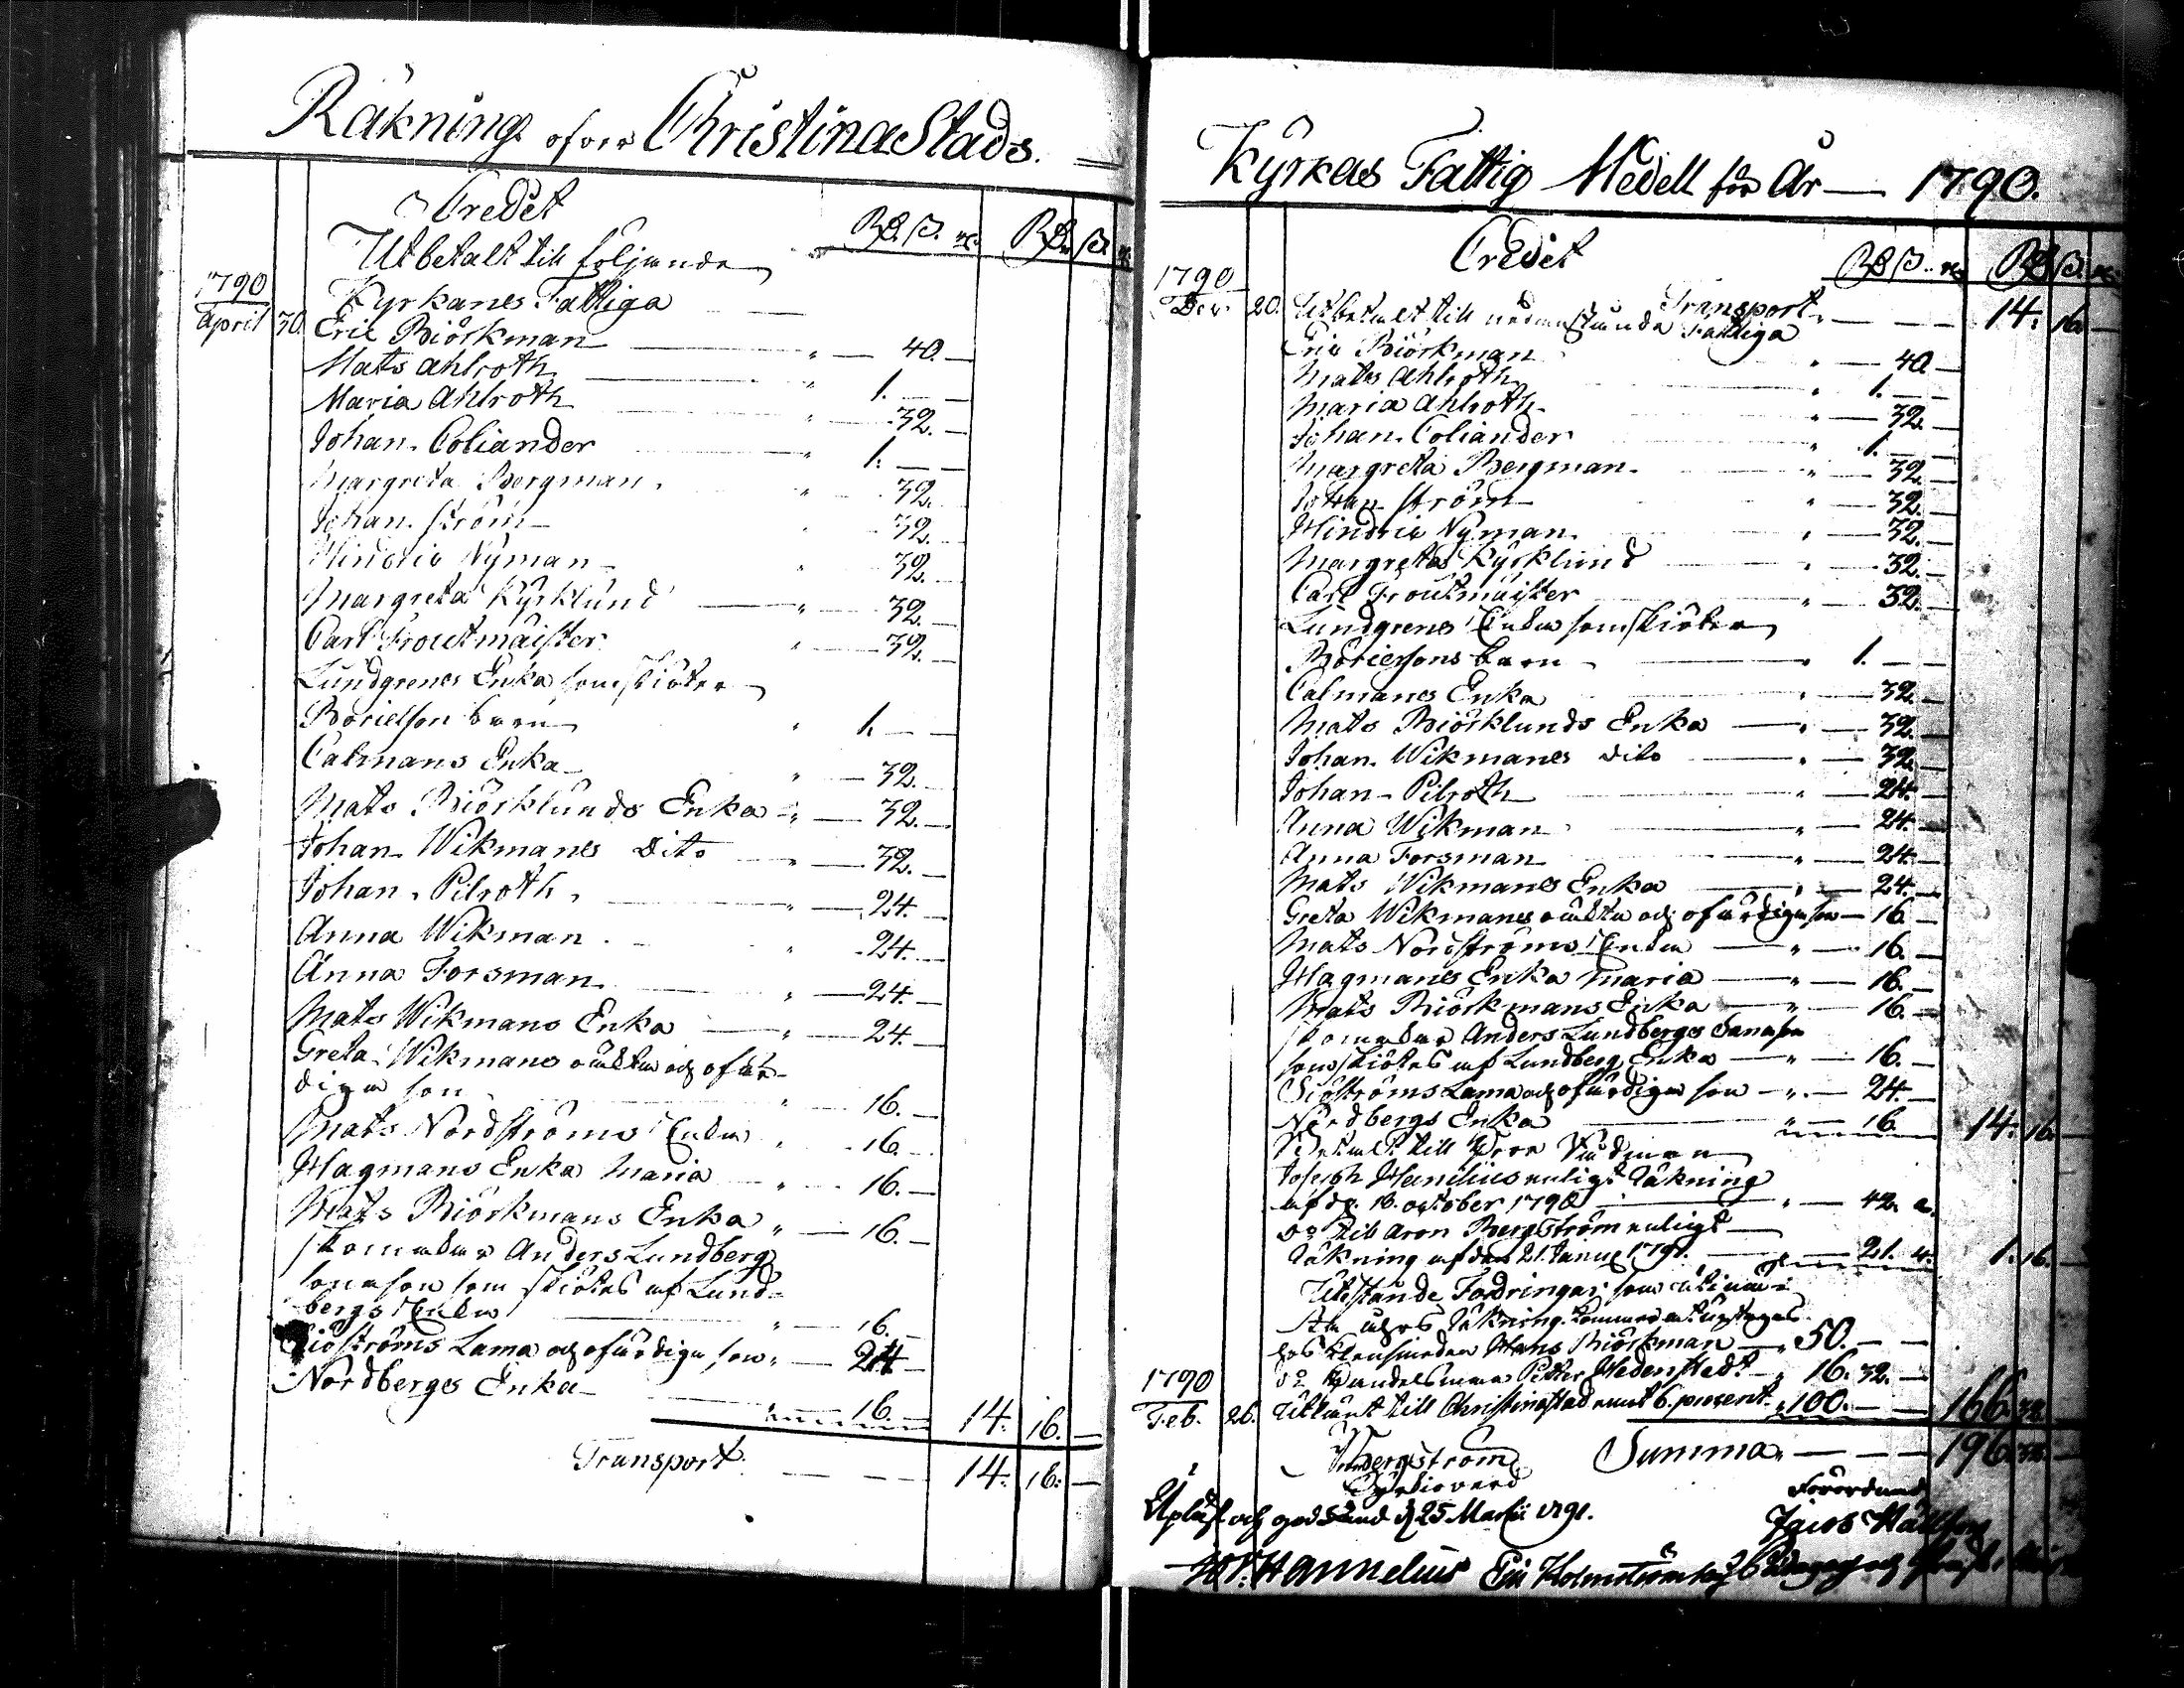 Räkning öfver Christinæ Stads
Credit
Utbetalt till följande
Rd. ß. rs. Rd. ß. rs.
1790
April 30. Kyrkanes Fattiga
Eric Biörkman " — 40. —
Mats Ahlroth " 1. — —
Maria Ahlroth " — 32. —
Johan Coliander " 1. — —
Margreta Bergman " — 32. —
Johan ström " — 32. —
Hindric Nyman " — 32. —
Margreta Kyrklund " — 32. —
Carl Troutmäister " — 32. —
Lundgrenes Enka som skiöter
Borielson barn " 1. — —
Calmans Enka " — 32. —
Mats Biörklunds Enka " — 32. —
Johan Wikmanes dito " — 32. —
Johan Pilroth " — 24. —
Anna Wikman " — 24. —
Anna Forsman " — 24. —
Mats Wikmans Enka " — 24. —
Greta Wikmans och ofär-
diga son " — 16. —
Mats Nordströms Enka " — 16. —
Hagmans Enka Maria " — 16. —
Mats Biörkmans Enka " — 16. —
skomakar Anders Lundberg
sonason som skiötes af Lund-
bergs Enka " — 16. —
Siöströms Lama och ofärdiga son " — 24 —
Nordbergs Enka " — 16. — 14. 16. —
Transport — — — 14. 16. —
Kyrkas Fattig Medell för År — 1790.
Credit
Rd ß. rs. Rd ß. rs.
1790
Transport — — — 14. 16. —
Dec. 20. Utbetalt till nedanstående Fattiga
Eric Biörkman " — 40 —
Mats Ahlroth " 1. — —
Maria Ahlroth " — 32. —
Johan Coliander " 1. — —
Margreta Bergman " — 32. —
Johan ström " — 32. —
Hindric Nyman " — 32. —
Margreta Kyrklund " — 32. —
Carl Troutmäister " — 32. —
Lundgrens Enka som skiöter
Boriersons barn " 1. — —
Calmanes Enka " — 32. —
Mats Biörklunds Enka " — 32. —
Johan Wikmanes dito " — 32. —
Johan Pilroth " — 24. —
Anna Wikman " — 24. —
Anna Forsman " — 24. —
Mats Wikmans Enka " — 24. —
Greta Wikmanes och ofärdiga son — 16 —
Mats Nordströms Enka " — 16. —
Hagmans Enka Maria " — 16. —
Mats Biörkmans Enka " — 16. —
skomakar Anders Lundbergs
som skiötes af Lundberg Enka " — 16. —
Siöströms Lama och ofärdiga son " — 24. —
Nordbergs Enka " — 16. 14. 16. —
Betalt till Herr Rådman
Joseph Hanelius enligt Räkning
af d. 18. october 1790 " — 42.
do till Aron Bergström enligt
Räkning af den 21. Januari 1791. " — 21. 1. 16. —
Utestånde Fordringar som
Räkning kommer at uptagas
hos Hans Biörkman " 50. — —
do Handelsman Petter Hedenstedt " 16. 32. —
1790
Feb. 26. Utlånt till Christinæstad emot 6. procent " 100. — — 166. 32
Summa " — — — 196. 32. —
Upläst och godkänd d 25 Martii 1791.
Jacob
Hannelius Eric Holmström